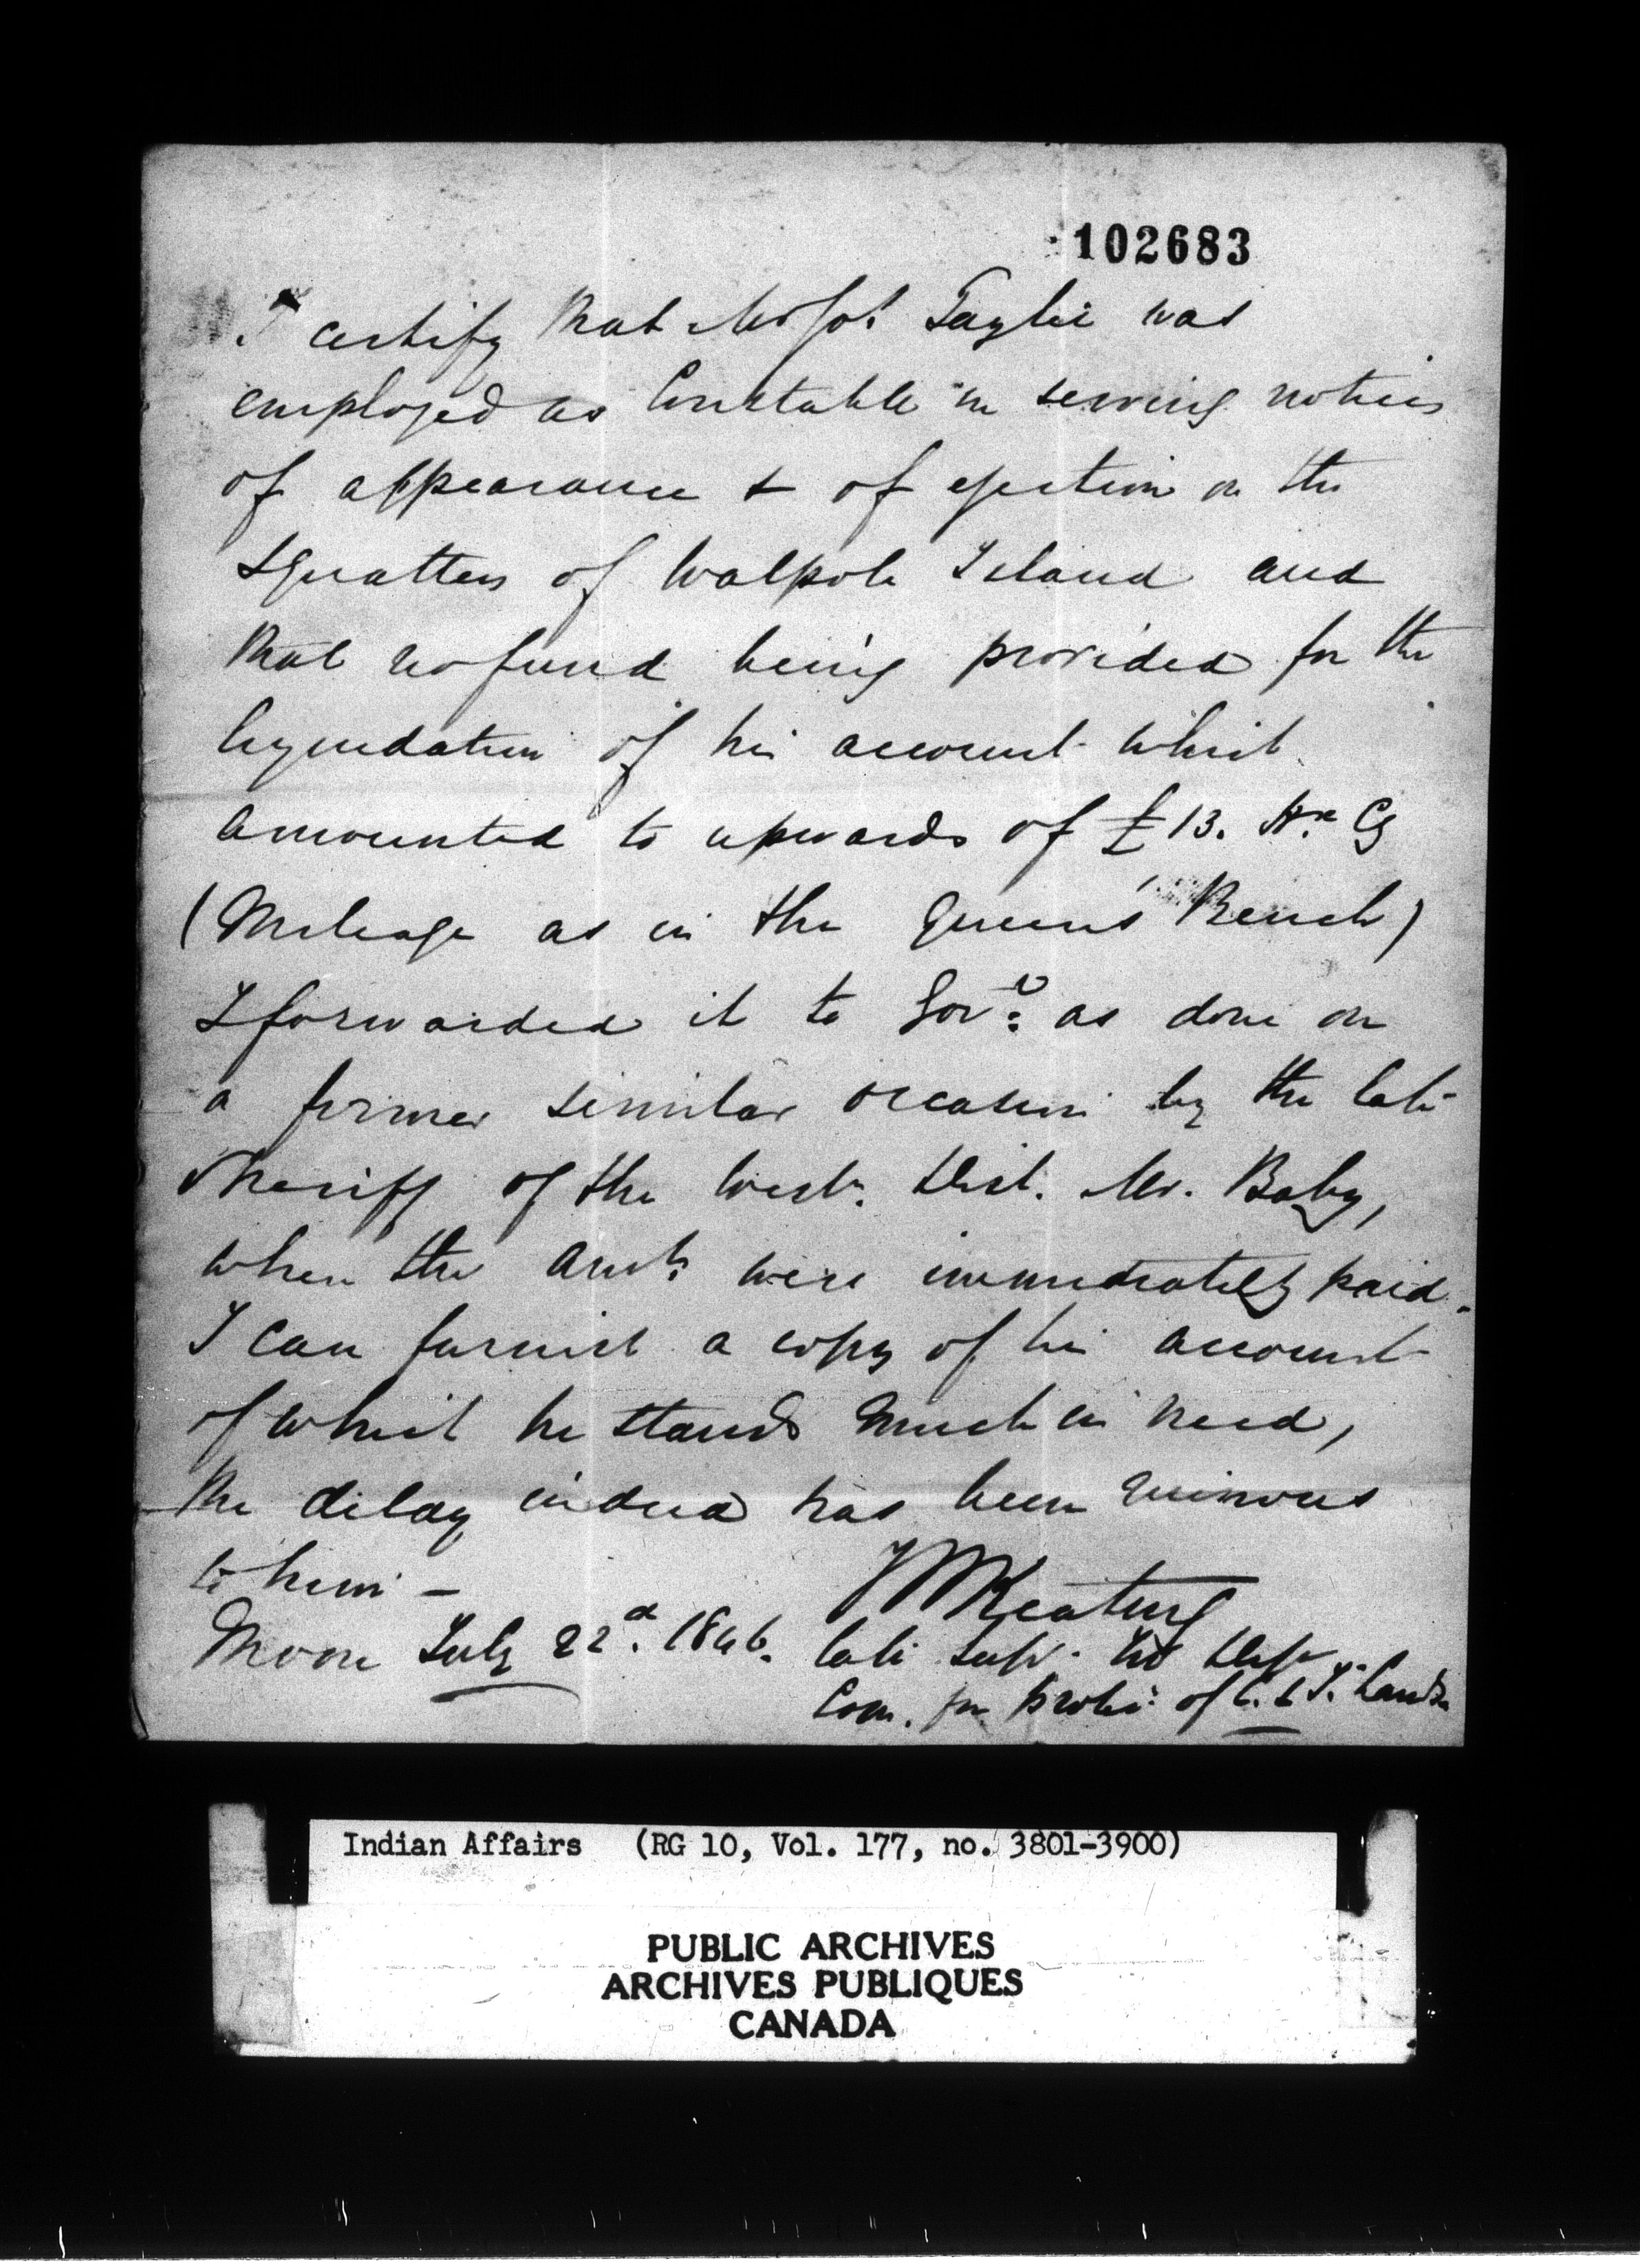 102683
I certify that Mr Jos. Taylor was
employed as Constable in serving notices
of appearance & of ejection on the
squatters of Walpole Island and
that no fund being provided for the
liquidation of his account which
amounted to upwards of £13. Cy
(Mileage as in the Queen's Bench)
I forwarded it to Govt. as done on
a former similar occasion by the late
Sheriff of the West. Dist. Mr. Baby,
when the Amts. were immediately paid.
I can furnish a copy of his account
of which he stands much in need,
the delay indeed has been ruinous
to him —
JW Keating
Moore July 22d. 1846.
late Supt. Ind Dept
Com. for protn. of C. & I. Lands
Indian Affairs (RG 10, Vol. 177, no. 3801-3900)
PUBLIC ARCHIVES
ARCHIVES PUBLIQUES
CANADA